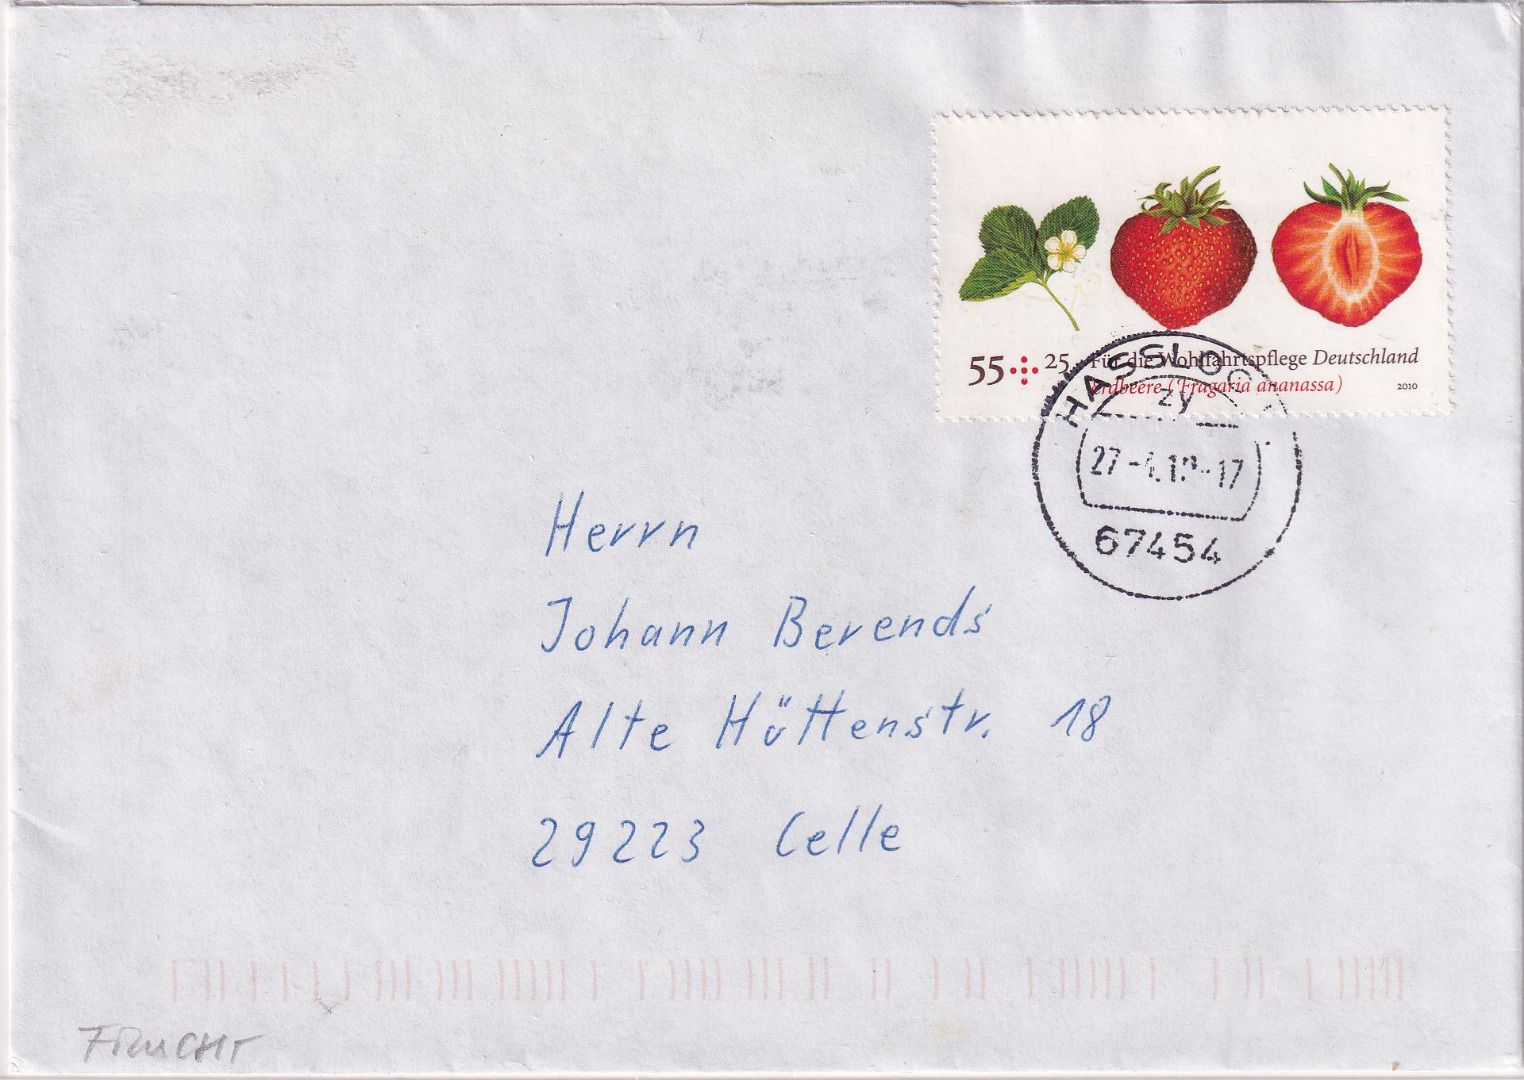 55+25 Für die Wohlfahrtspflege Deutschland
Erdbeere (Fragaria ananassa) 2010
HASSLOC
zy
27-4.10-17
67454
Herrn
Johann Berends
Alte Hüttenstr. 18
29223 Celle
FRUCHT